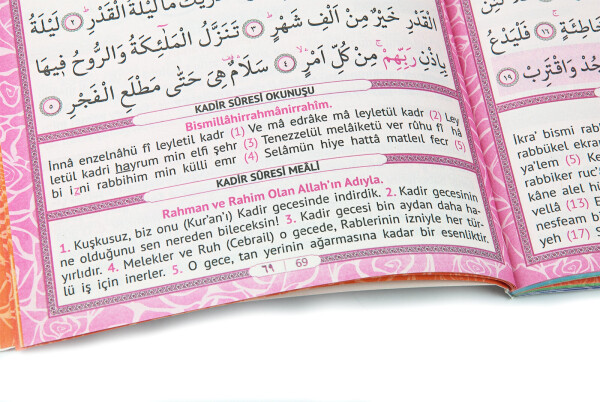 الْقَدْرِ خَيْرٌ مِنْ اَلْفِ شَهْرٍ ﴿٣﴾ تَنَزَّلُ الْمَلٰٓئِكَةُ وَالرُّوحُ ف۪يهَا
بِاِذْنِ رَبِّهِمْ مِنْ كُلِّ اَمْرٍ ﴿٤﴾ سَلَامٌ هِيَ حَتّٰى مَطْلَعِ الْفَجْرِ ﴿٥﴾
KADİR SÛRESİ OKUNUŞU
Bismillâhirrahmânirrahîm.
İnnâ enzelnâhü fî leyletil kadr (1) Ve mâ edrâke mâ leyletül kadr (2) Ley
letül kadri hayrum min elfi şehr (3) Tenezzelül melâiketü ver rûhu fî hâ
bi izni rabbihim min külli emr (4) Selâmün hiye hattâ matleıl fecr (5)
KADİR SÛRESİ MEÂLİ
Rahman ve Rahim Olan Allah'ın Adıyla.
1. Kuşkusuz, biz onu (Kur'an'ı) Kadir gecesinde indirdik. 2. Kadir gecesinin
ne olduğunu sen nereden bileceksin! 3. Kadir gecesi bin aydan daha ha-
yırlıdır. 4. Melekler ve Ruh (Cebrail) o gecede, Rablerinin izniyle her tür-
lü iş için inerler. 5. O gece, tan yerinin ağarmasına kadar bir esenliktir.
٦٩ 69
İkra' bismi rabb
rabbükel ekram
ya'lem (5) Ke
rabbike ruc'
kâne alel h
vellâ (13) E
nesfeam bi
yeh (17) S